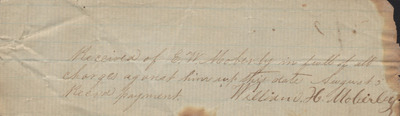 Received of E W Moberly in full of all
charges against him up this date
payment. William H. Moberly